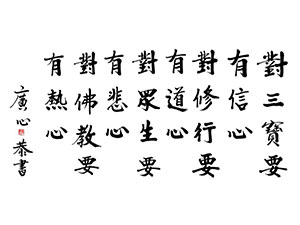 對三寶要
有信心
對修行要
有道心
對眾生要
有悲心
對佛教要
有熱心
廣心恭書